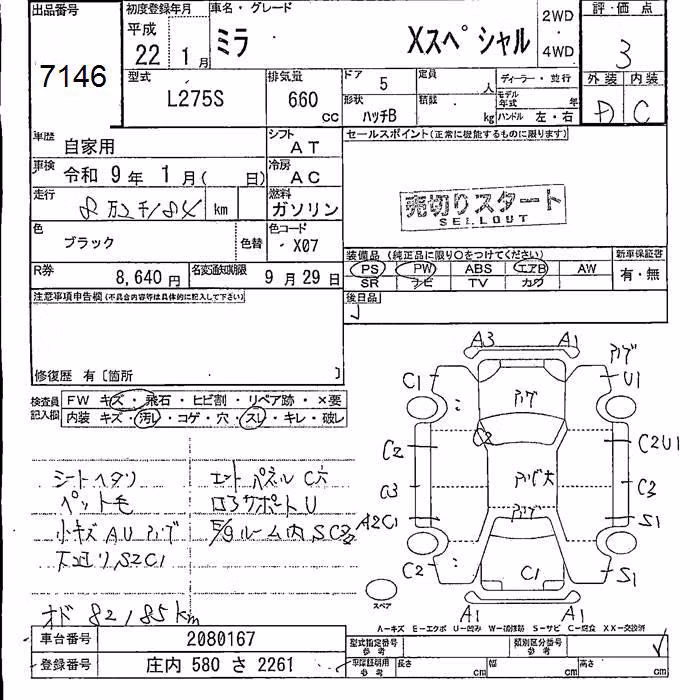 出品番号
7146
初度登録年月
平成
22 1月
車名・グレード
ミラ Xスペシャル
2WD
4WD
評・価 点
3
外装 内装
D C
型式
L275S
排気量
660 CC
ドア 5
形状 ハッチB
定員 人
積載 kg
ディーラー・並行
モデル年式 年
ハンドル 左・右
車歴
自家用
シフト
AT
車検
令和 9年 1月( 日)
冷房
AC
走行
km
燃料
ガソリン
色
ブラック
色替
色コード
X07
R券
8,640 円
名変通知期限
9月29日
セールスポイント(正常に機能するものに限ります)
売切りスタート
SELLOUT
装備品 (純正品に限り○をつけてください)
新車保証書
PS PW ABS エアB AW
SR ナビ TV カワ
有・無
後日品
注意事項申告欄(不具合内容等は具体的に記入して下さい)
修復歴 有〔箇所 〕
検査員記入欄
FW キズ・飛石・ヒビ割・リペア跡・×要
内装 キズ・汚レ・コゲ・穴・スレ・キレ・破レ
シートヘタリ
ペット毛
小キズ AU
下廻りS2C1
ロアサポートU
ルーム内
オド 82185km
A3 A1
C1 U1
C2
C2 C2U1
C3 C3
A2C1 S1
C2 C1 S1
スペア
A1 A1
A－キズ E－エクボ U－凹み W－補修跡 S－サビ C－腐食 XX－交換済
車台番号 2080167
登録番号 庄内 580 さ 2261
型式指定番号 参考
類別区分番号 参考
車庫証明用 参考
長さ cm 幅 cm 高さ cm